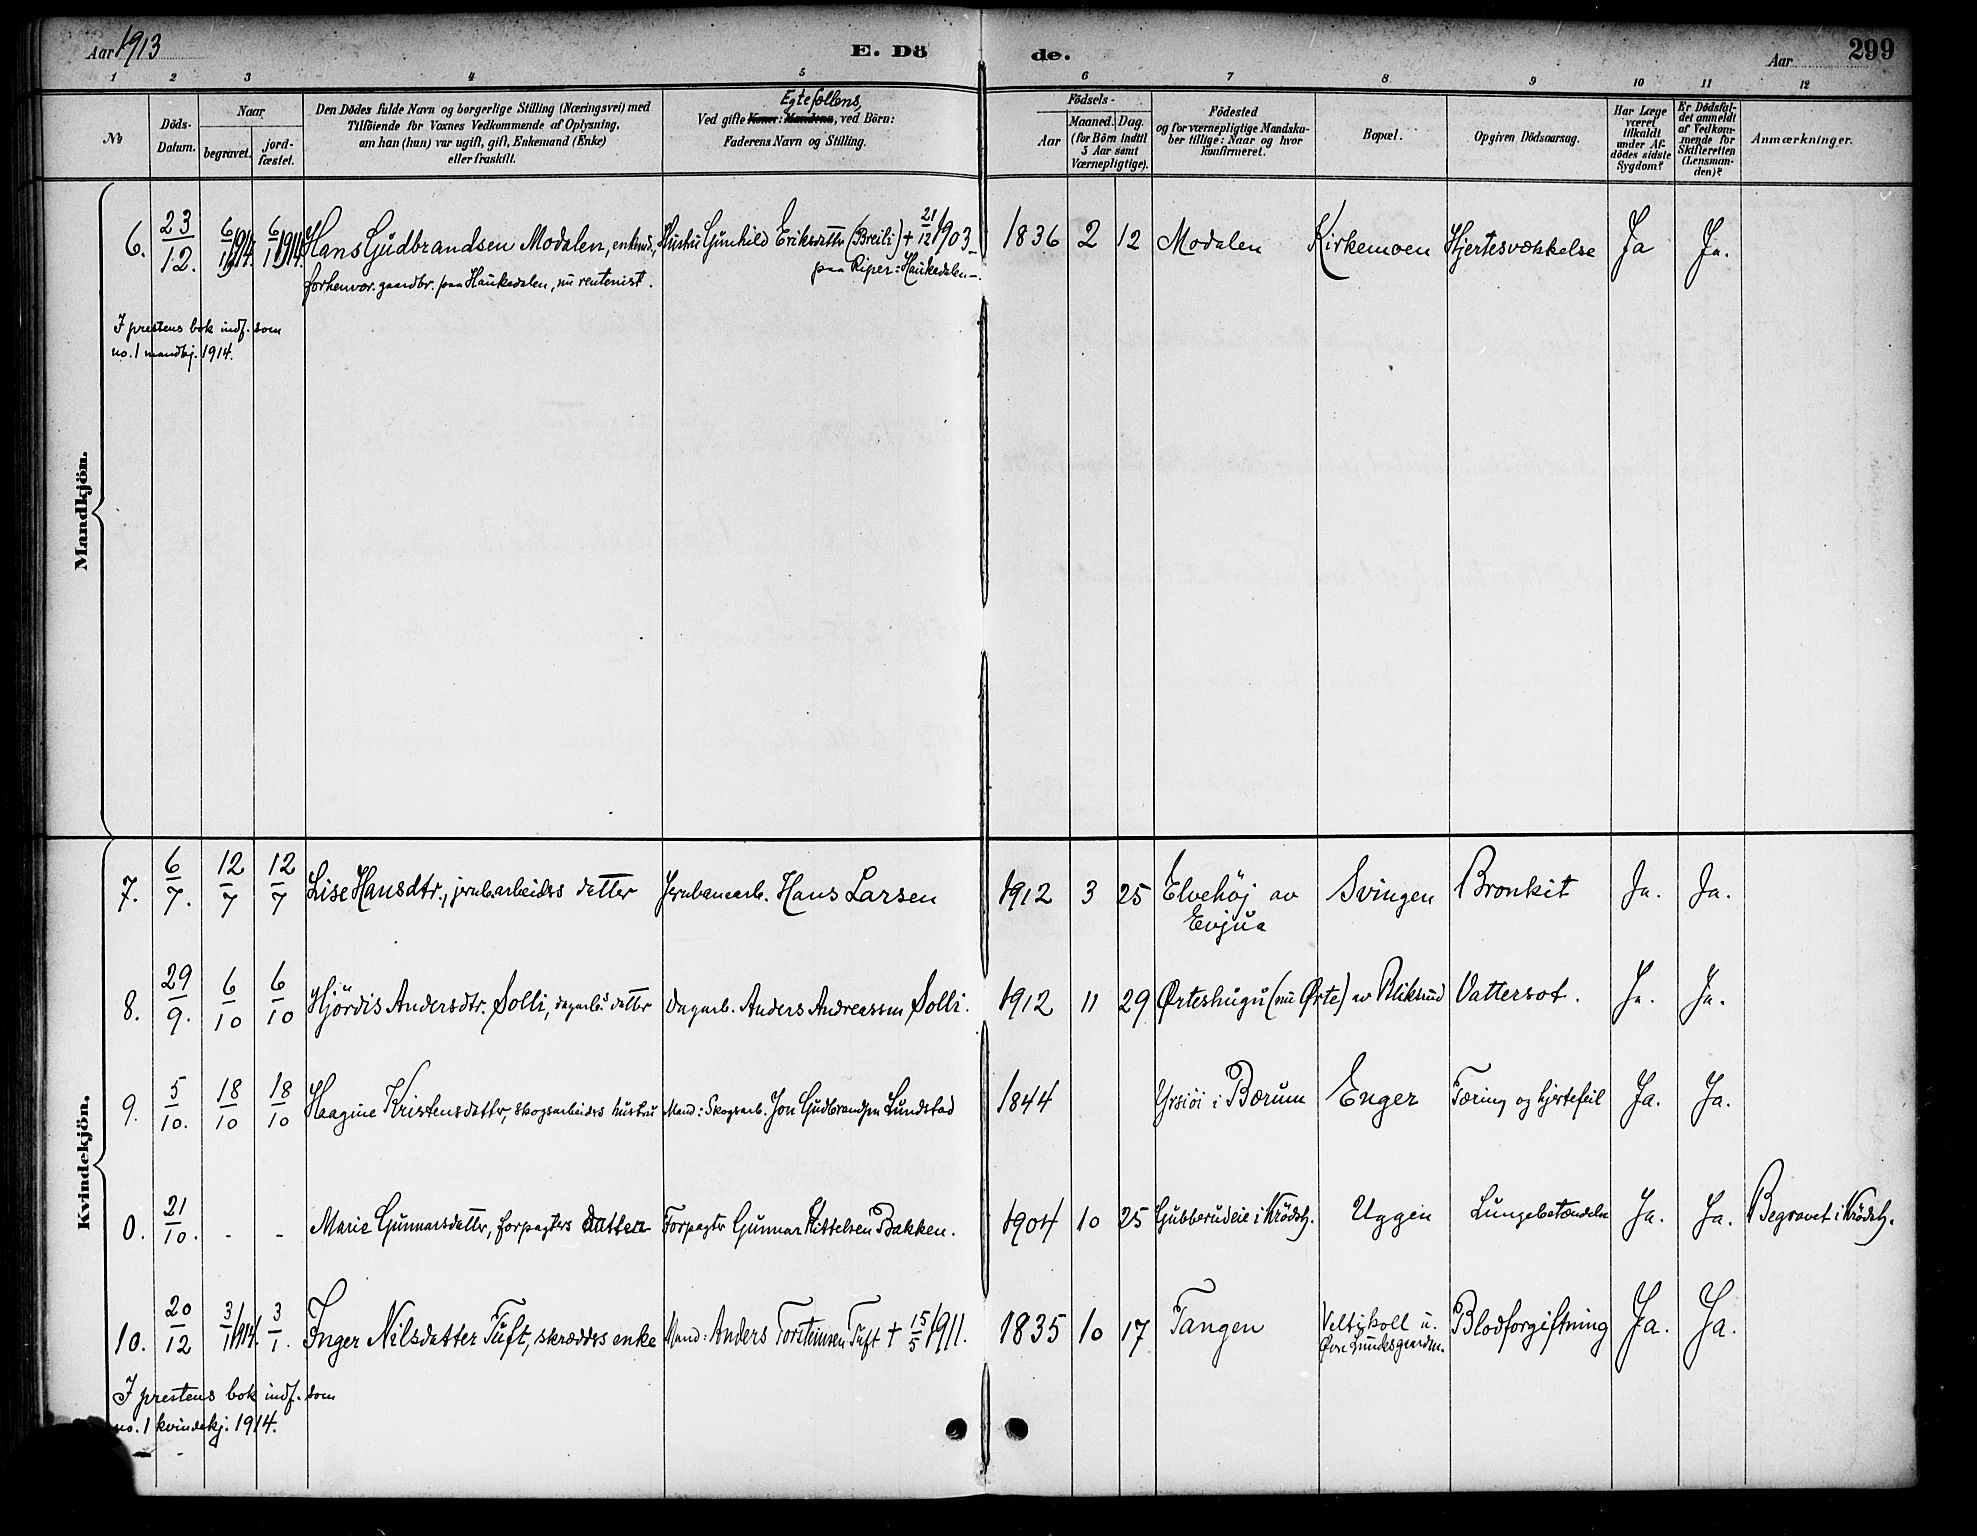 Aar 1913
E. Dö
de.
Aar
299
1 2 3 4 5 6 7 8 9 10 11 12
No
Döds-
Datum.
Naar
begravet.
jord-
fæstet.
Den Dödes fulde Navn og borgerlige Stilling (Næringsvei) med
Tilföiende for Voxnes Vedkommende af Oplysning,
om han (hun) var ugift, gift, Enkemand (Enke)
eller fraskilt.
Egtefællens,
Ved gifte Koner: Mandens, ved Börn:
Faderens Navn og Stilling.
Födsels-
Aar
Maaned. Dag.
(for Börn indtil
5 Aar samt
Værnepligtige).
Födested
og for værnepligtige Mandska-
ber tillige: Naar og hvor
konfirmeret.
Bopæl.
Opgiven Dödsaarsag.
Har Læge
været
tilkaldt
under Af-
dödes sidste
Sygdom?
Er Dödsfal-
det anmeldt
af Vedkom-
mende for
Skifteretten
(Lensman-
den)?
Anmærkninger.
Mandkjön.
6. 23/12. 6/1 1914. 6/1 1914. Hans Gudbrandsen Modalen, enkemd., Hustru Gunhild Eriksdattr (Breili) + 21/12 1903 1836 2 12 Modalen Kirkemoen Hjertesvækkelse Ja Ja.
forhenvær. gaardbr. paa Haukedalen, nu rentenist. paa Riper: Haukedalen
I prestens bok indf. som
no. 1 mandkj. 1914.
Kvindekjön.
7. 6/7. 12/7 12/7 Lise Hansdtr., jernbarbeiders datter Jernbanearb. Hans Larsen 1912 3 25 Elvehöj av Svingen Bronkit Ja. Ja.
Evjua
8. 29/9. 6/10 6/10 Hjördis Andersdtr. Solli, dagarb.s datter Dagarb. Anders Andreassen Solli. 1912 11 29 Ørteshugu (nu Ørte) av Bliksrud Vattersot. Ja. Ja.
9. 5/10. 18/10 18/10 Haagine Kristensdatter, skogsarbeiders hustru Mand: Skogsarb. Jon Gudbrandsen Lundstad 1844 i Bærum Enger Tæring og hjertefeil Ja. Ja.
0. 21/10. - - Marie Gunnarsdatter, forpagters datter Forpagter Gunnar Kittelsen Bakken. 1904 10 25 Gubberudeie i Krödsh. Uggen Lungebetændelse Ja. Ja. Begravet i Krödsh.
10. 20/12 3/1 1914. 3/1. Inger Nilsdatter Tuft, skrædders enke Mand: Anders Torsteinsen Tuft + 15/5 1911. 1835 10 17 Tangen Veltikoll u. Blodforgiftning Ja. Ja.
Øvre Lundesgaarden.
I prestens bok indf. som
no. 1 kvindekj. 1914.